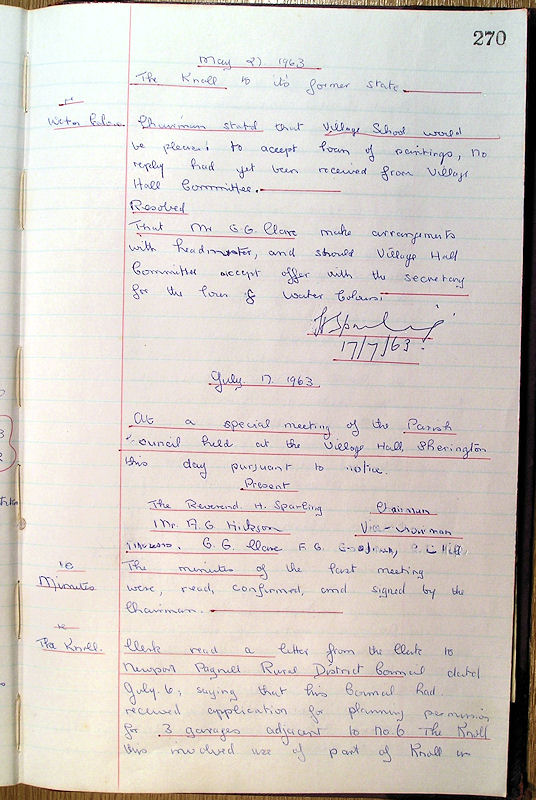 270
May 21 1963
The Knoll to it's former state
re
Water Colours Chairman stated that Village School would
be pleased to accept loan of paintings, no
reply had yet been received from Village
Hall Committee.
Resolved
That Mr G.G. Clare make arrangements
with headmaster, and should Village Hall
Committee accept offer with the secretary
for the loan of Water Colours.
H Sparling
17/7/63.
July. 17. 1963.
At a special meeting of the Parish
Council held at the Village Hall, Sherington
this day pursuant to notice.
Present
The Reverend. H. Sparling Chairman
Mr. A.G. Hickson Vice-Chairman
Messrs. G.G. Clare F.G.
re
Minutes The minutes of the last meeting
were, read, confirmed, and signed by the
Chairman.
re
The Knoll. Clerk read a letter from the Clerk to
Newport Pagnell Rural District Council dated
July. 6; saying that his Council had
received application for planning permission
for 3 garages adjacent to no.6 The Knoll
this involved use of part of Knoll in